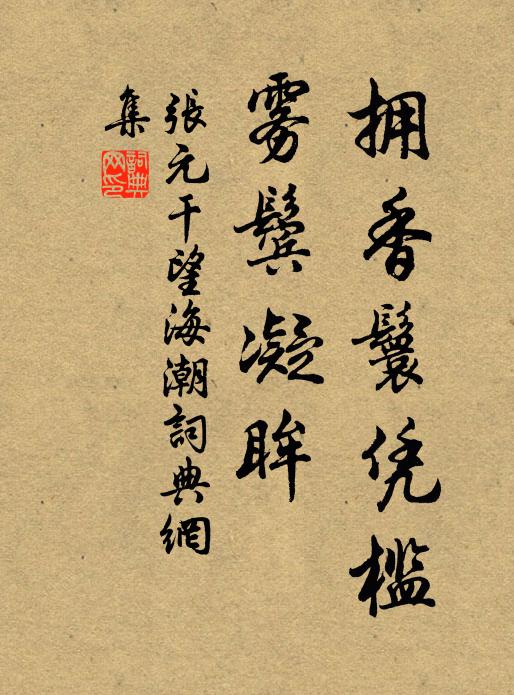 拥香鬟凭槛
雾鬓凝眸
張元干望海潮詞典網
集
詞典网印